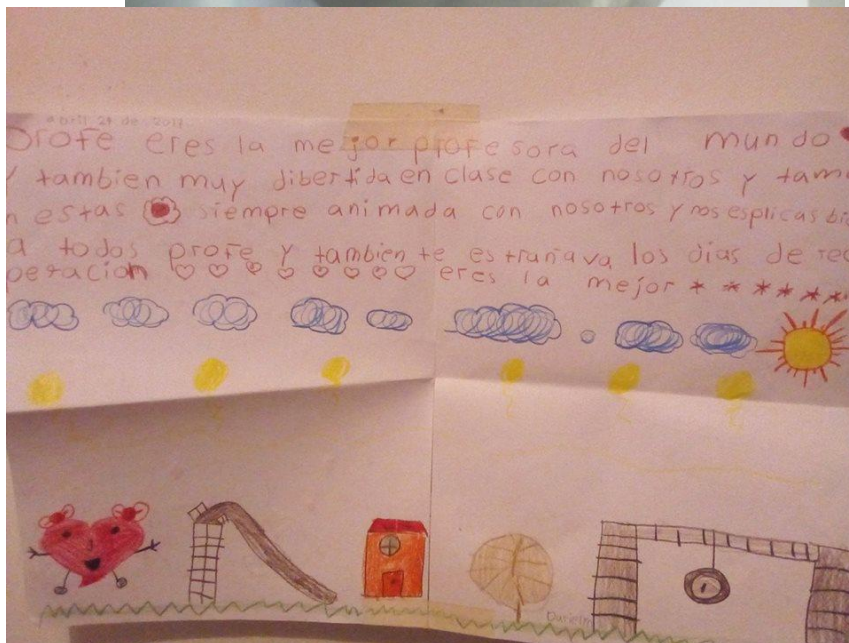 abril 21 de 2017
profe eres la mejor profesora del mundo
y tambien muy dibertida en clase con nosotros y tam
n estas siempre animada con nosotros y nos esplicas bi
a todos profe y tambien te estrañava los dias de rec
peracion eres la mejor * * * * * * *